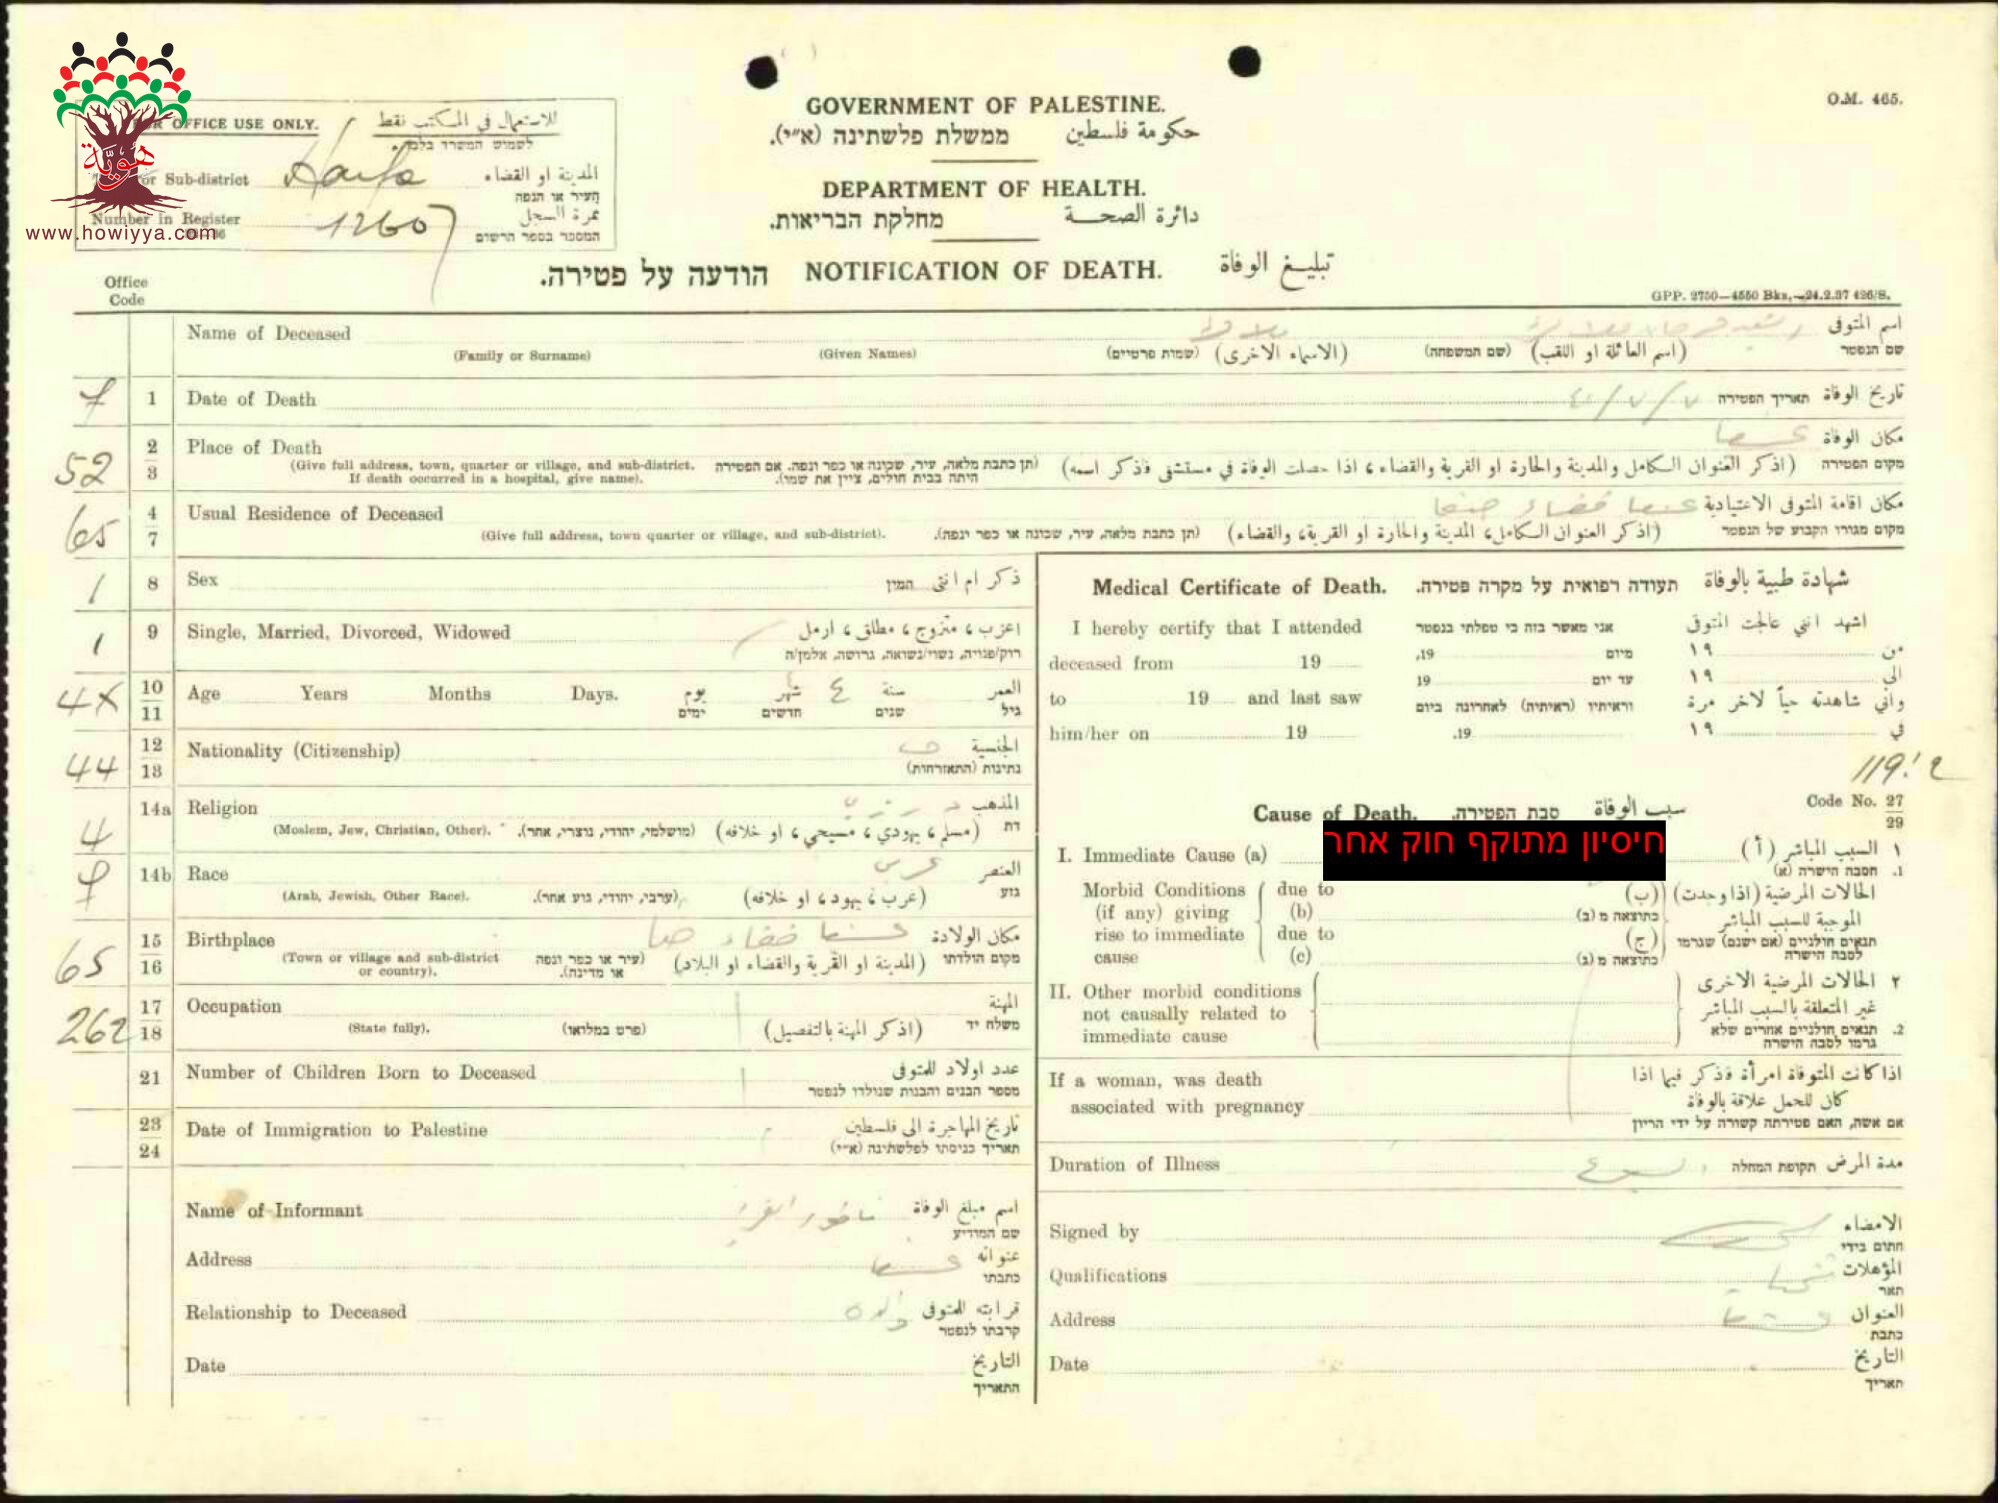 هوية
www.howiyya.com
FOR OFFICE USE ONLY. للاستعمال في المكتب فقط
לשמוש המשרד בלבד.
or Sub-district Haifa المدينة او القضاء
העיר או הנפה
Number in Register 1260 نمرة السجل
המספר בספר הרשום
GOVERNMENT OF PALESTINE.
ממשלת פלשתינה (א״י). حكومة فلسطين
DEPARTMENT OF HEALTH.
מחלקת הבריאות. دائرة الصحة
O.M. 465.
הודעה על פטירה. NOTIFICATION OF DEATH. تبليغ الوفاة
GPP. 2750—4550 Bks,—24.2.37 426/S.
Office
Code
Name of Deceased اسم المتوفى
(Family or Surname) (Given Names) (שמות פרטיים) (الاسماء الاخرى) (שם המשפחה) (اسم العائلة او اللقب) שם הנפטר
1 Date of Death ٧/٧/ תאריך הפטירה تاريخ الوفاة
52 2 3 Place of Death مكان الوفاة
(Give full address, town, quarter or village, and sub-district. (תן כתבת מלאה, עיר, שכונה או כפר ונפה. אם הפטירה (اذكر العنوان الكامل والمدينة والحارة او القرية والقضاء، اذا حصلت الوفاة في مستشفى فاذكر اسمه) מקום הפטירה
If death occurred in a hospital, give name). היתה בבית חולים, ציין את שמו).
65 4 7 Usual Residence of Deceased مكان اقامة المتوفى الاعتيادية
(Give full address, town quarter or village, and sub-district). (תן כתבת מלאה, עיר, שכונה או כפר ונפה). (اذكر العنوان الكامل، المدينة والحارة او القرية، والقضاء) מקום מגורו הקבוע של הנפטר
1 8 Sex המין ذكر ام انثى
1 9 Single, Married, Divorced, Widowed اعزب، متزوج، مطلق، ارمل
רוק/פנויה, נשוי/נשואה, גרושה, אלמן/ה
4X 10 11 Age Years Months Days. يوم شهر ٤ سنة العمر
ימים חדשים שנים גיל
44 12 13 Nationality (Citizenship) الجنسية
נתינות (התאזרחות)
14a Religion المذهب
4 (Moslem, Jew, Christian, Other). (מושלמי, יהודי, נוצרי, אחר). (مسلم، يهودي، مسيحي، او خلافه) דת
14b Race العنصر
(Arab, Jewish, Other Race). (ערבי, יהודי, גזע אחר). (عرب، يهود، او خلافه) גזע
65 15 16 Birthplace مكان الولادة
(Town or village and sub-district or country). (עיר או כפר ונפה או מדינה). (المدينة او القرية والقضاء او البلاد) מקום הולדתו
262 17 18 Occupation المهنة
(State fully). (פרט במלואו) (اذكر المهنة بالتفصيل) משלח יד
21 Number of Children Born to Deceased عدد اولاد للمتوفى
מספר הבנים והבנות שנולדו לנפטר
23 24 Date of Immigration to Palestine تاريخ المهاجرة الى فلسطين
תאריך כניסתו לפלשתינה (א״י)
Name of Informant اسم مبلغ الوفاة
שם המודיע
Address عنوانه
כתבתו
Relationship to Deceased والده قرابته للمتوفى
קרבתו לנפטר
Date التاريخ
התאריך
Medical Certificate of Death. תעודה רפואית על מקרה פטירה. شهادة طبية بالوفاة
I hereby certify that I attended אני מאשר בזה כי טפלתי בנפטר اشهد انني عالجت المتوفى
deceased from 19 מיום 19, من ١٩
עד יום 19 الى ١٩
to 19 and last saw וראיתיו (ראיתיה) לאחרונה ביום واني شاهدته حياً لاخر مرة
him/her on 19 19. في ١٩
Code No. 27 29
Cause of Death. סבת הפטירה. سبب الوفاة
חיסיון מתוקף חוק אחר
I. Immediate Cause (a) ١ السبب المباشر (أ)
1. הסבה הישרה (א)
Morbid Conditions due to الحالات المرضية (اذا وجدت) (ب)
(if any) giving (b) כתוצאה מ (ב) الموجبة للسبب المباشر
rise to immediate due to (ج) תנאים חולניים (אם ישנם) שגרמו
cause (c) כתוצאה מ (ג) לסבה הישרה
II. Other morbid conditions ٢ الحالات المرضية الاخرى
not causally related to غير المتعلقة بالسبب المباشر
immediate cause 2. תנאים חולניים אחרים שלא
גרמו לסבה הישרה
If a woman, was death اذا كانت المتوفاة امرأة فذكر فيما اذا
associated with pregnancy كان للحمل علاقة بالوفاة
אם אשה, האם פטירתה קשורה על ידי הריון
Duration of Illness תקופת המחלה مدة المرض
Signed by الامضاء
חתום בידי
Qualifications المؤهلات
תאר
Address العنوان
כתבת
Date التاريخ
תאריך